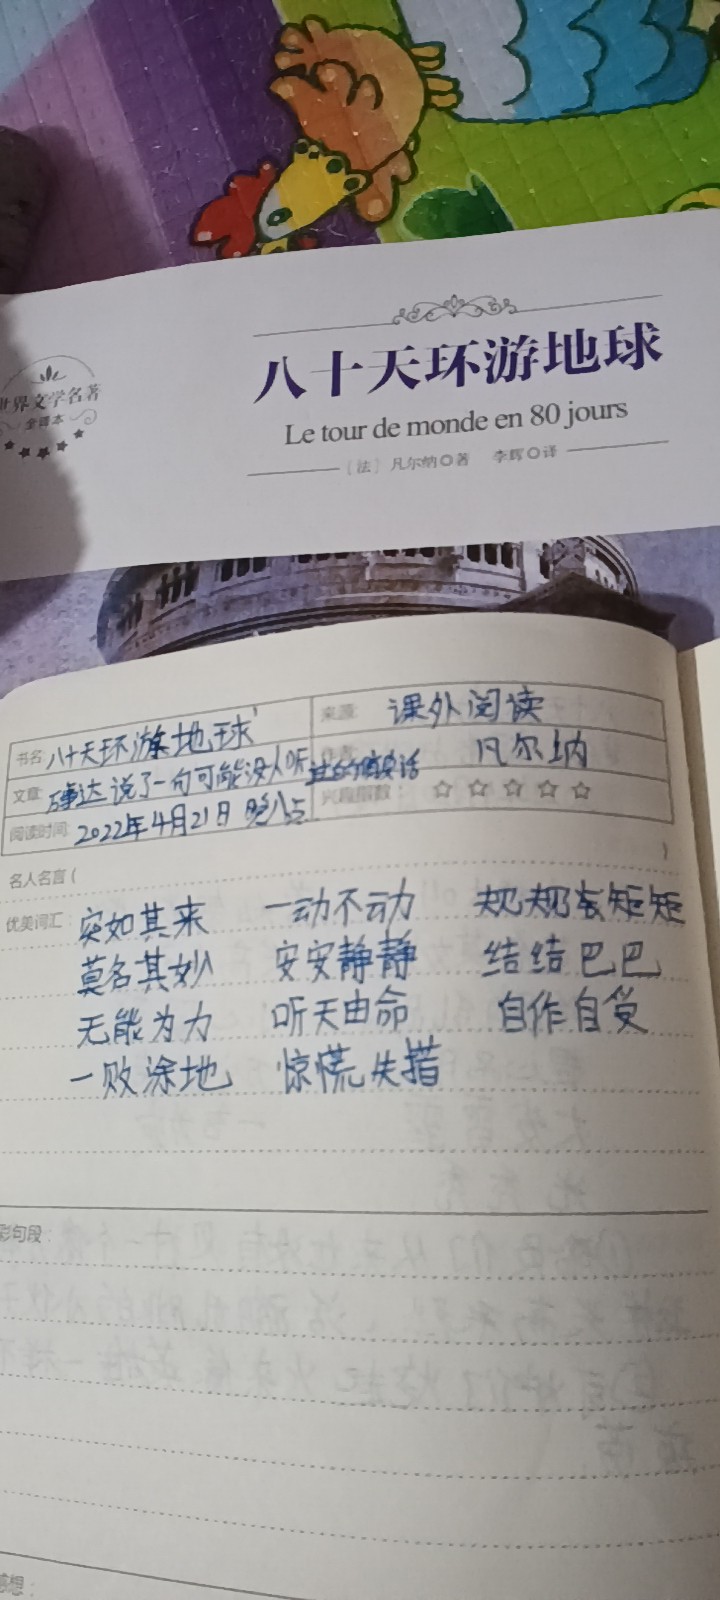 世界文学名著
全译本
八十天环游地球
Le tour de monde en 80 jours
〔法〕凡尔纳◎著 李辉◎译
书名: 八十天环游地球 来源: 课外阅读
文章: 万事达说了一句可能没人听过的俏皮话 作者: 凡尔纳
阅读时间: 2022年4月21日 晚八点 兴趣指数: ☆ ☆ ☆ ☆ ☆
名人名言( )
优美词汇 突如其来 一动不动 规规矩矩
莫名其妙 安安静静 结结巴巴
无能为力 听天由命 自作自受
一败涂地 惊慌失措
彩句段:
感想: